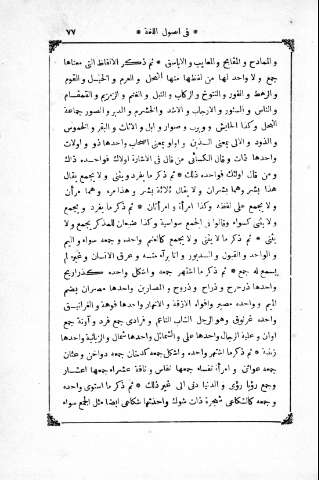 * فى اصول اللغة * ٧٧
والممادح والمقابح والمعايب والاباسق * ثم ذكر الالفاظ التى معناها
جمع ولا واحد لها من لفظها منها النحل والعرم والخيل والقوم
والرهط والفور والتنوخ والركاب والنبل والغنم والزمزيم والقمقام
والناس
النحل وكذا الخابش وربرب وصوار وابل والاثاث والبقر والخموس
والذود والالى بمعنى الذين واولو بمعنى اصحاب واحدها ذو واولات
واحدها ذات وقال الكسائى من قال فى الاشارة اولاك فواحده ذاك
ومن قال اولئك فواحده ذلك * ثم ذكر ما يفرد ويثنى ولا يجمع يقال
هذا بشر وهما بشران ولا يقال ثلاثة بشر وهذا مرء وهما مرآن
ولا يجمع على لفظه وكذا امرأة وامرأتان * ثم ذكر ما يفرد ويجمع
ولا يثنى كسواء وقالوا فى الجمع سواسية وكذا ضبعان للمذكر يجمع ولا
يثنى * ثم ذكر ما لا يثنى ولا يجمع كالغنم واحده وجمعه سواء واليم
والواحد والقبول والدبور وانا برآء منه وعرق الانسان وغيره لم
يسمع له جمع * ثم ذكر ما اشتهر جمعه واشكل واحده كذراريح
واحدها ذرحرح وذراح وذروح والمصارين واحدها مصران بضم
الميم وواحده مصير وافواه الازقة والانهار واحدها فوهة والغرانيق
واحده غرنوق وهو الرجل الشاب الناعم وفرادى جمع فرد وآونة جمع
اوان وعلية الرجال واحدها على والشمائل واحدها شمال والزبانية واحدها
زبنية * ثم ذكر ما اشتهر واحده واشكل جمعه كدخان جمعه دواخن وعثان
جمعه عواثن وامرأة نفساء جمعها نفاس وناقة عشراء جمعها اعشار
وجمع رؤيا رؤى والدنيا دنى الى غير ذلك * ثم ذكر ما استوى واحده
وجمعه كالشكاعى شجرة ذات شوك واحدتها شكاعى ايضا مثل الجمع سواء